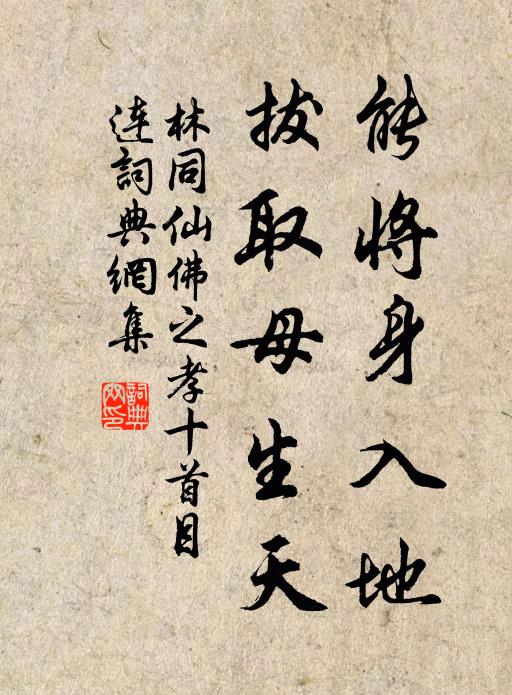 能將身入地
拔取母生天
林同仙佛之孝十首目
連詞典網集
詞典网印